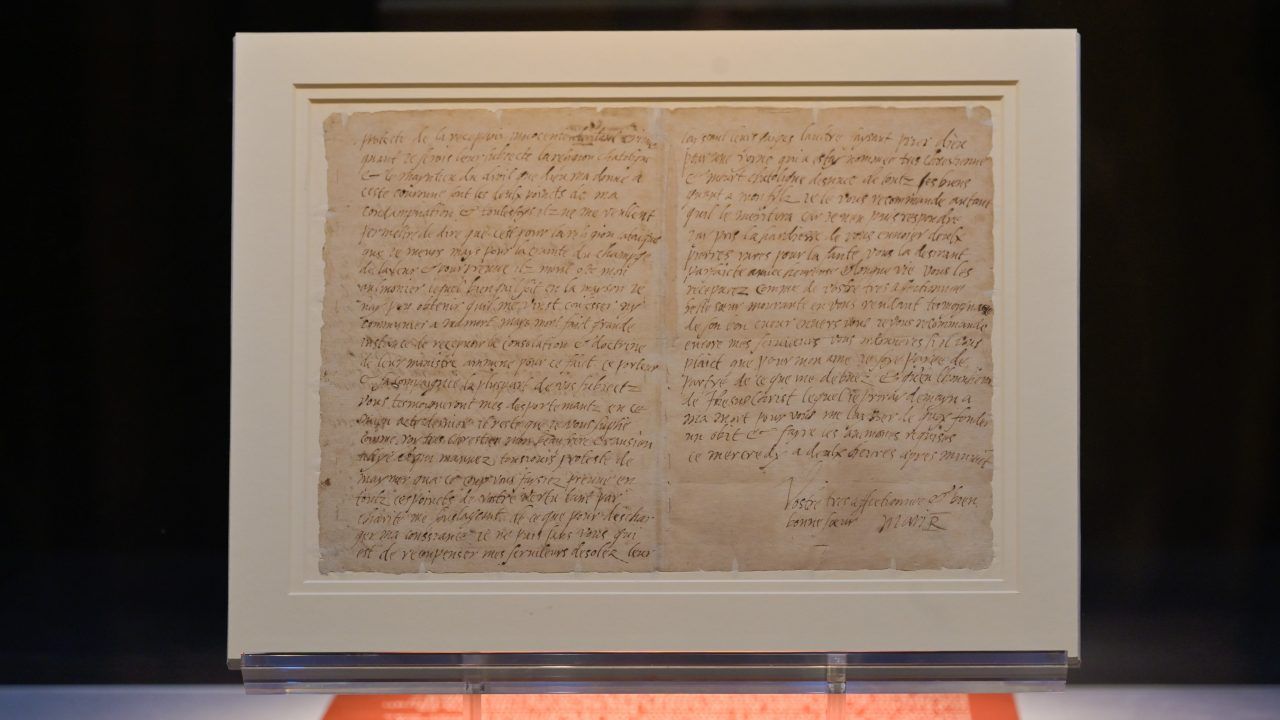 proteste de la recepvoir innocente de tout crime
quant je serois leur subjecte la religion chatolique
& le mayntien du droit que dieu ma donne a
ceste couronne sont les deulx points de ma
condampnation & toutesfoys ilz ne me veulent
permetre de dire que cest pour la religion catolique
que je meurs mays pour la crainte du champge
de la leur & pour preuve ilz mont oste mon
aulmonier lequel bien quil soit en la mayson je
nay peu obtenir quil me vinst confesser ny
communier a ma mort mays mont fait grande
instance de recepvoir la consolation & doctrine
de leur ministre ammene pour ce fait ce porteur
& sa compaignie la pluspart de vos subjectz
vous tesmoigneront mes desportemantz en ce
mien acte dernier il reste que je vous suplie
comme roy tres chrestien mon beau frere & ansien
allye & qui mavvez tousjours proteste de
maymer qua ce coup vous faysiez preuve en
toutz ces points de vostre vertu tant par
charite me soulageant de ce que pour deschar
ger ma conssiance je ne puis sans vous qui
est de recompenser mes serviteurs desolez leur
layssant leurs gages laultre faysant prier dieu
pour une royne qui a estay nommee tres chrestienne
& meurt chatolique desnuee de toutz ses biens
quant a mon filz je le vous recommande autant
quil le meritera car je nen puis respondre
jay pris la hardiesse de vous envoier deulx
pierres rares pour la sante vous la desirant
parfaicte avec heureuse & longue vie vous les
recepvrez comme de vostre tres affectionnee
belle sœur mourante en vous rendant tesmoygnage
de son bon cueur envers vous je vous recommande
encore mes serviteurs vous ordonneres si il vous
plaict que pour mon ame je soye payee de
partye de ce que me debvez & quen lhonneur
de Jhesus Christ lequel je priray demayn a
ma mort pour vous me laisser de quoy fonder
un obit & fayre les aumones requises
ce mercredy a deulx heures apres minuit
Vostre tres affectionnee & bien
bonne sœur MariR